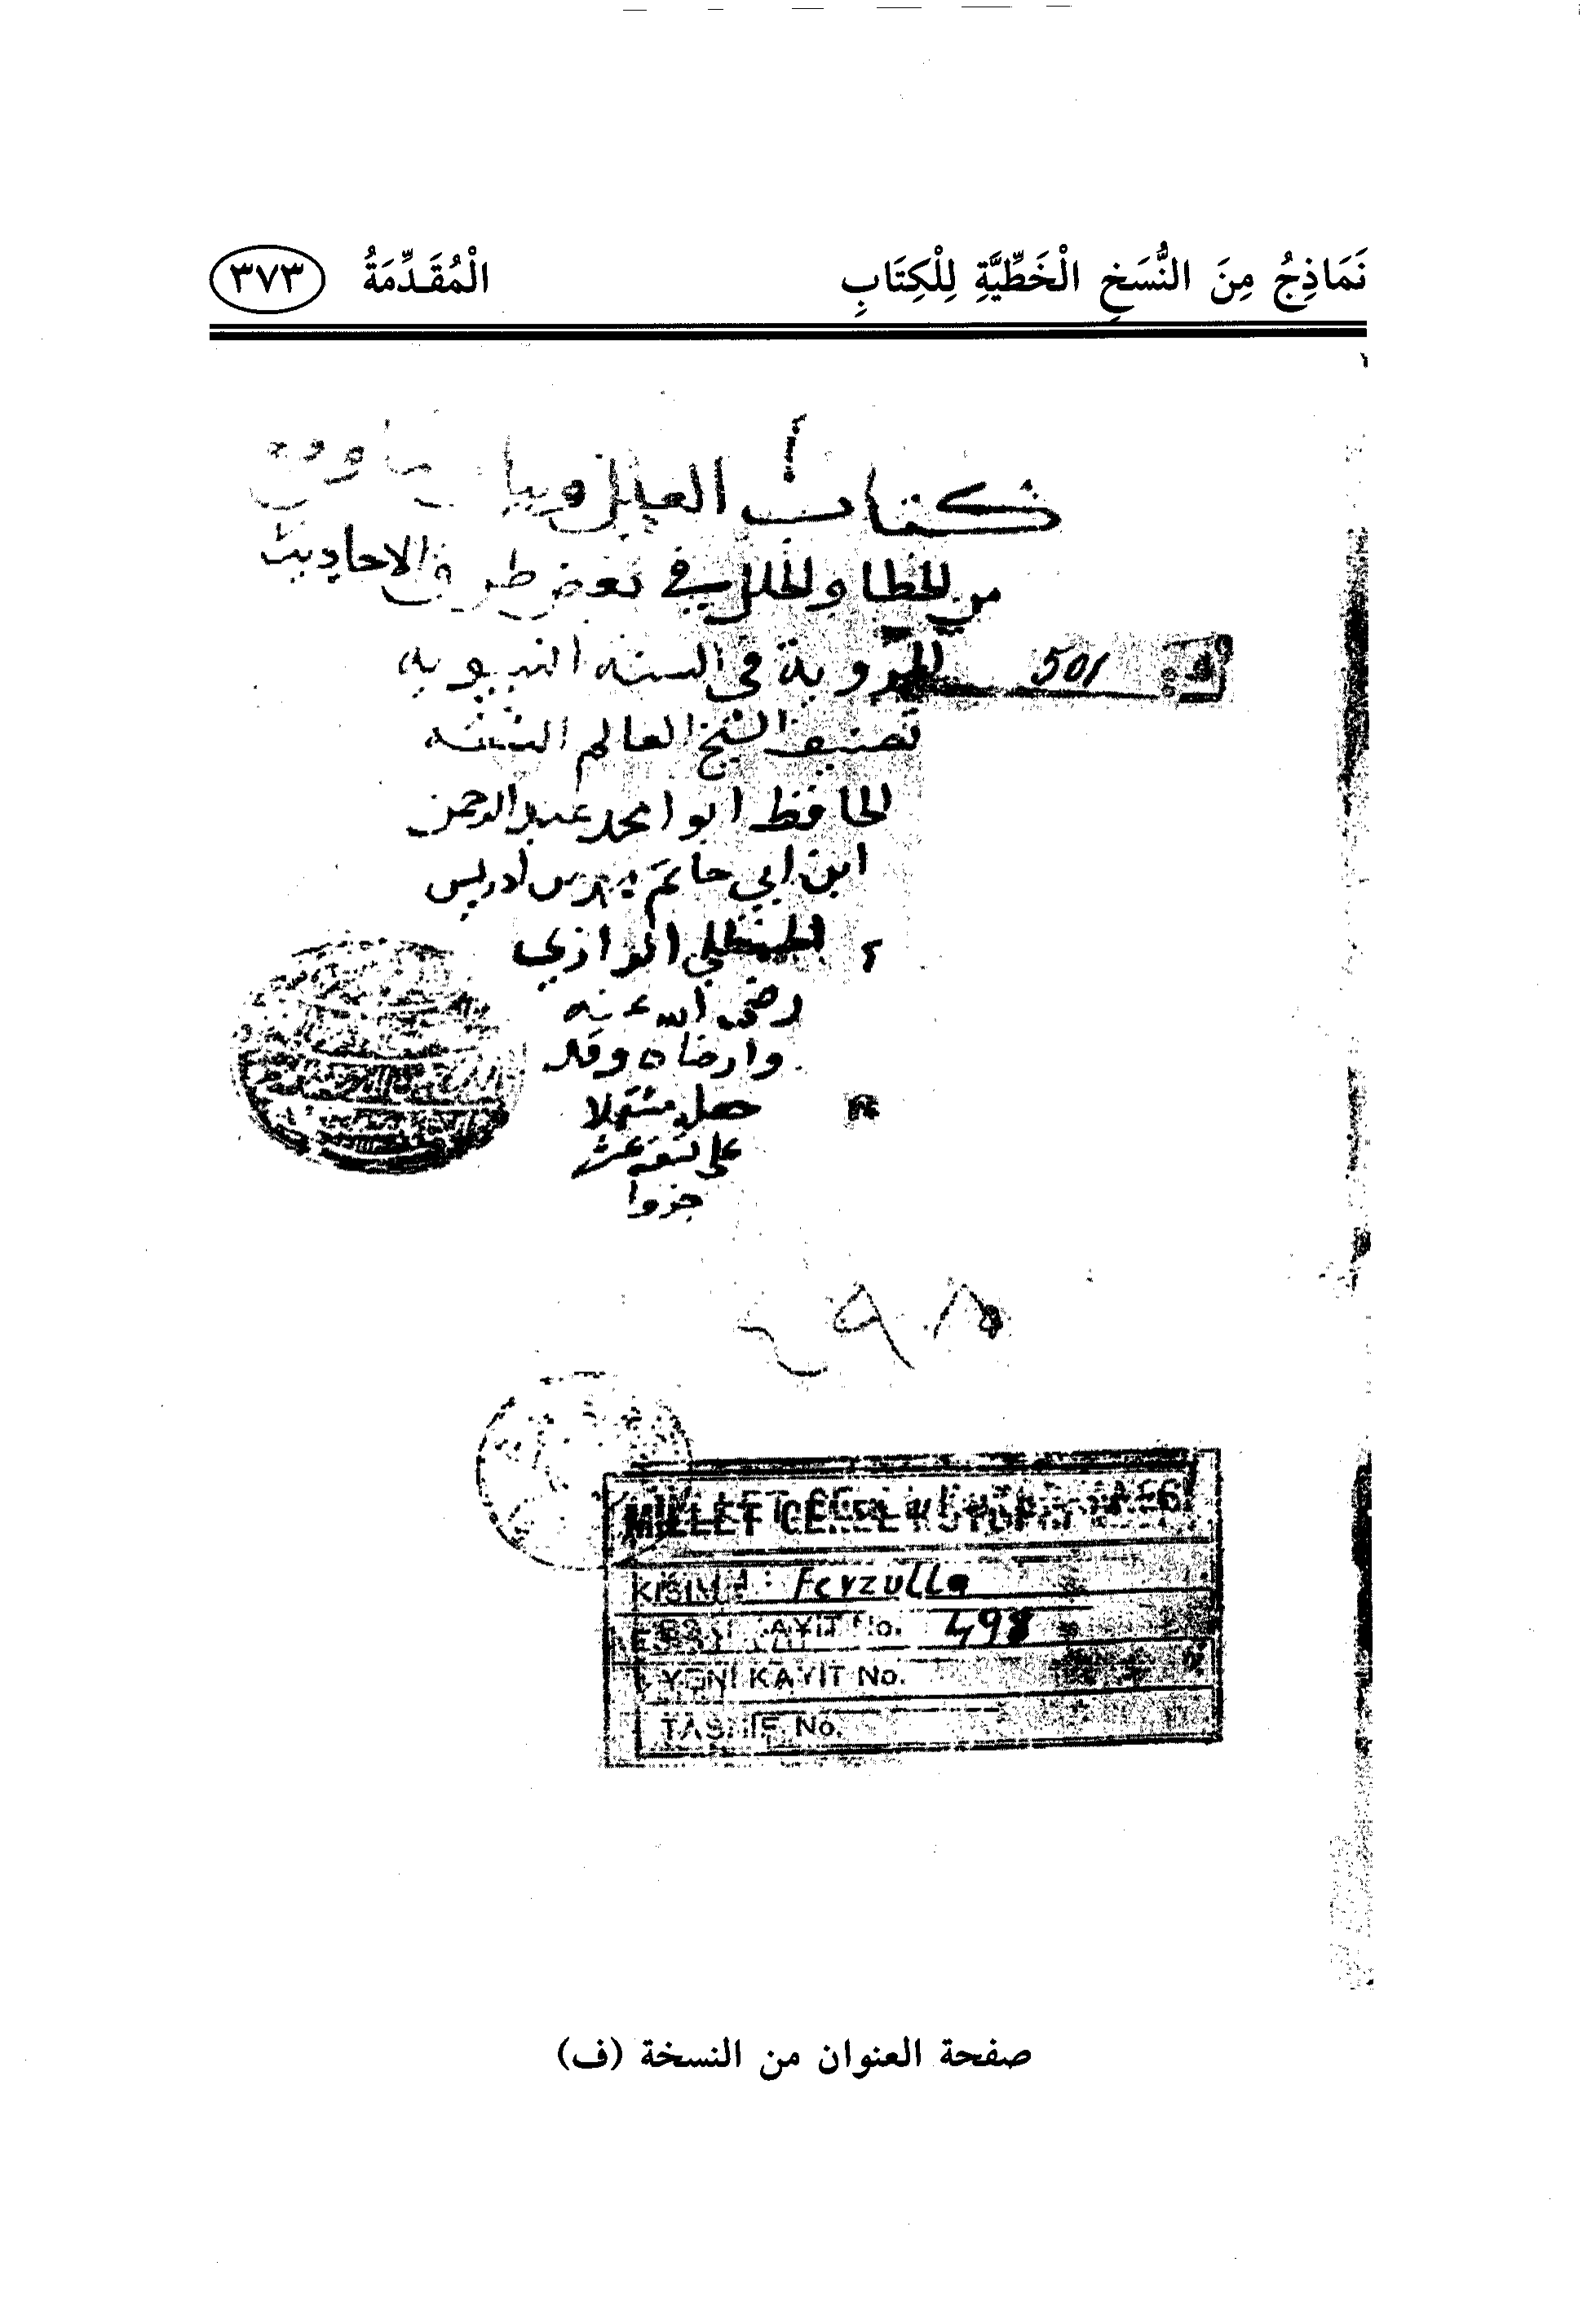 نَمَاذِجُ مِنَ النُّسَخِ الْخَطِّيَّةِ لِلْكِتَابِ الْمُقَدِّمَةُ ٣٧٣
كتاب العلل وبيان ما وقع
من الخطا والخلل في بعض طرق الاحاديث
المروية في السنه النبويه
501
تصنيف الشيخ العالم الثقه
الحافظ ابوا محمد عبد الرحمن
ابن ابي حاتم محمد بن ادريس
الحنظلي الرازي
رضي الله عنه
وارضاه وقد
جعل مشتملا
على تسعة عشر
جزوا
٤٩٨
MİLLET GENEL KÜTÜPHANESİ
KISIM : Feyzulla
ESKİ KAYIT No. 498
YENİ KAYIT No.
TASNİF No.
صفحة العنوان من النسخة (ف)